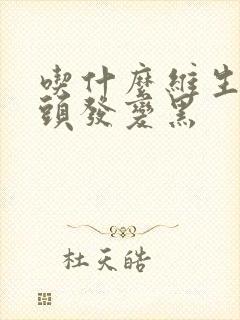 喫什麼維生
頭發變黑
杜天皓